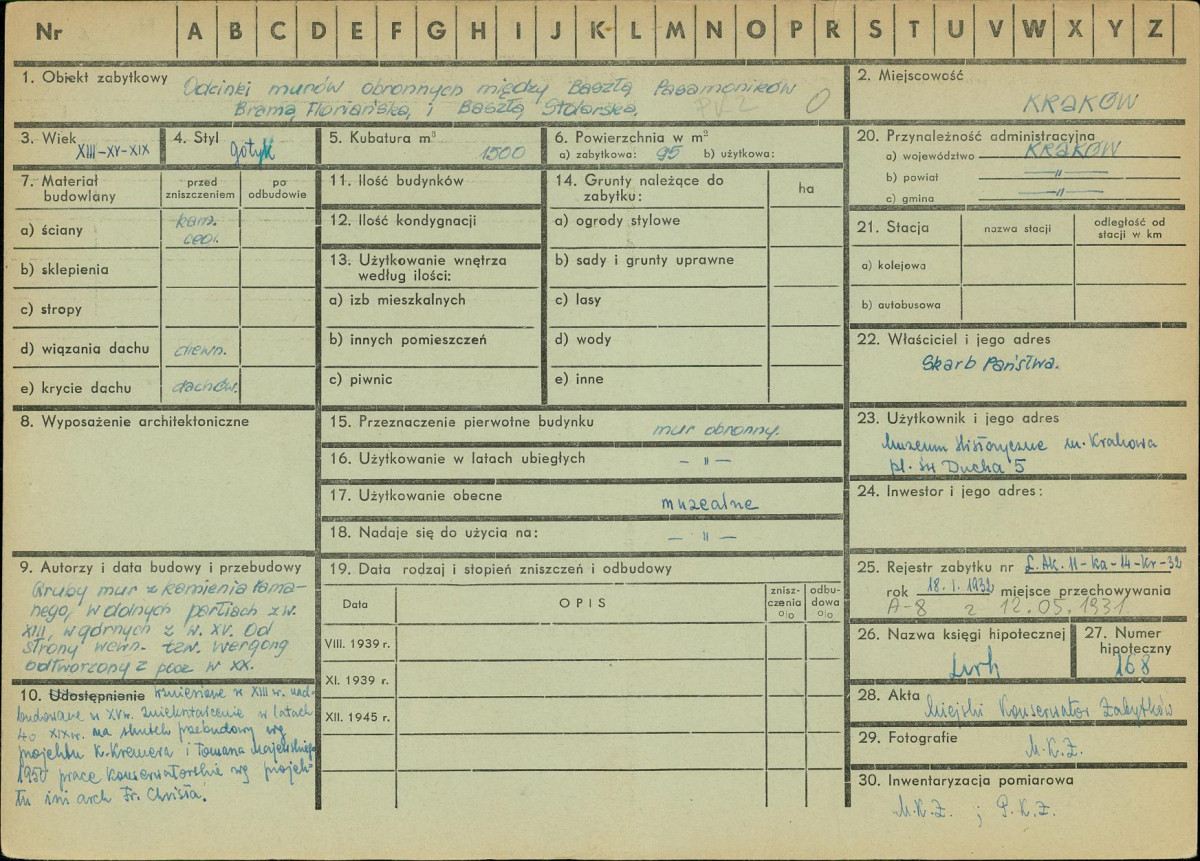 Nr A B C D E F G H I J K L M N O P R S T U V W X Y Z
1. Obiekt zabytkowy Odcinki murów obronnych między Basztą Pasamoników
Bramą Floriańską, i Basztą Stolarską. 0
2. Miejscowość
KRAKÓW
3. Wiek XIII-XV-XIX
4. Styl gotyk
5. Kubatura m³
1500
6. Powierzchnia w m²
a) zabytkowa: 95 b) użytkowa:
20. Przynależność administracyjna
a) województwo KRAKÓW
b) powiat —"—
c) gmina —"—
7. Materiał budowlany
przed zniszczeniem
po odbudowie
a) ściany kam. ceg.
b) sklepienia
c) stropy
d) wiązania dachu drewn.
e) krycie dachu dachów.
11. Ilość budynków
12. Ilość kondygnacji
13. Użytkowanie wnętrza
według ilości:
a) izb mieszkalnych
b) innych pomieszczeń
c) piwnic
14. Grunty należące do
zabytku:
ha
a) ogrody stylowe
b) sady i grunty uprawne
c) lasy
d) wody
e) inne
21. Stacja
nazwa stacji
odległość od
stacji w km
a) kolejowa
b) autobusowa
22. Właściciel i jego adres
Skarb Państwa.
8. Wyposażenie architektoniczne
15. Przeznaczenie pierwotne budynku mur obronny.
16. Użytkowanie w latach ubiegłych — " —
17. Użytkowanie obecne muzealne
18. Nadaje się do użycia na: — " —
23. Użytkownik i jego adres
Muzeum Historyczne m. Krakowa
pl. św Ducha 5
24. Inwestor i jego adres:
9. Autorzy i data budowy i przebudowy
Gruby mur z kamienia łama-
nego, w dolnych partiach z w.
XIII, w górnych z w. XV. Od
strony wewn. tzw. wergong
odtworzony z pocz w XX.
10. Udostępnienie Wzniesione w XIII w. nad-
budowane w XVw. Zniekształcenie w latach
40 XIXw. na skutek przebudowy wg
projektu K. Kremera i Tomasza Majewskiego
1950 prace konserwatorskie wg projek-
tu inż arch Fr. Christa.
19. Data rodzaj i stopień zniszczeń i odbudowy
Data
OPIS
znisz-
czenia
%
odbu-
dowa
%
VIII. 1939 r.
XI. 1939 r.
XII. 1945 r.
25. Rejestr zabytku nr L.Ak. 11-Ka-14-Kr-32
rok 18.I.1932 miejsce przechowywania
A-8 z 12.05.1931.
26. Nazwa księgi hipotecznej
Lwh
27. Numer
hipoteczny
168
28. Akta
Miejski Konserwator Zabytków
29. Fotografie
M.K.Z.
30. Inwentaryzacja pomiarowa
M.K.Z. ; P.K.Z.